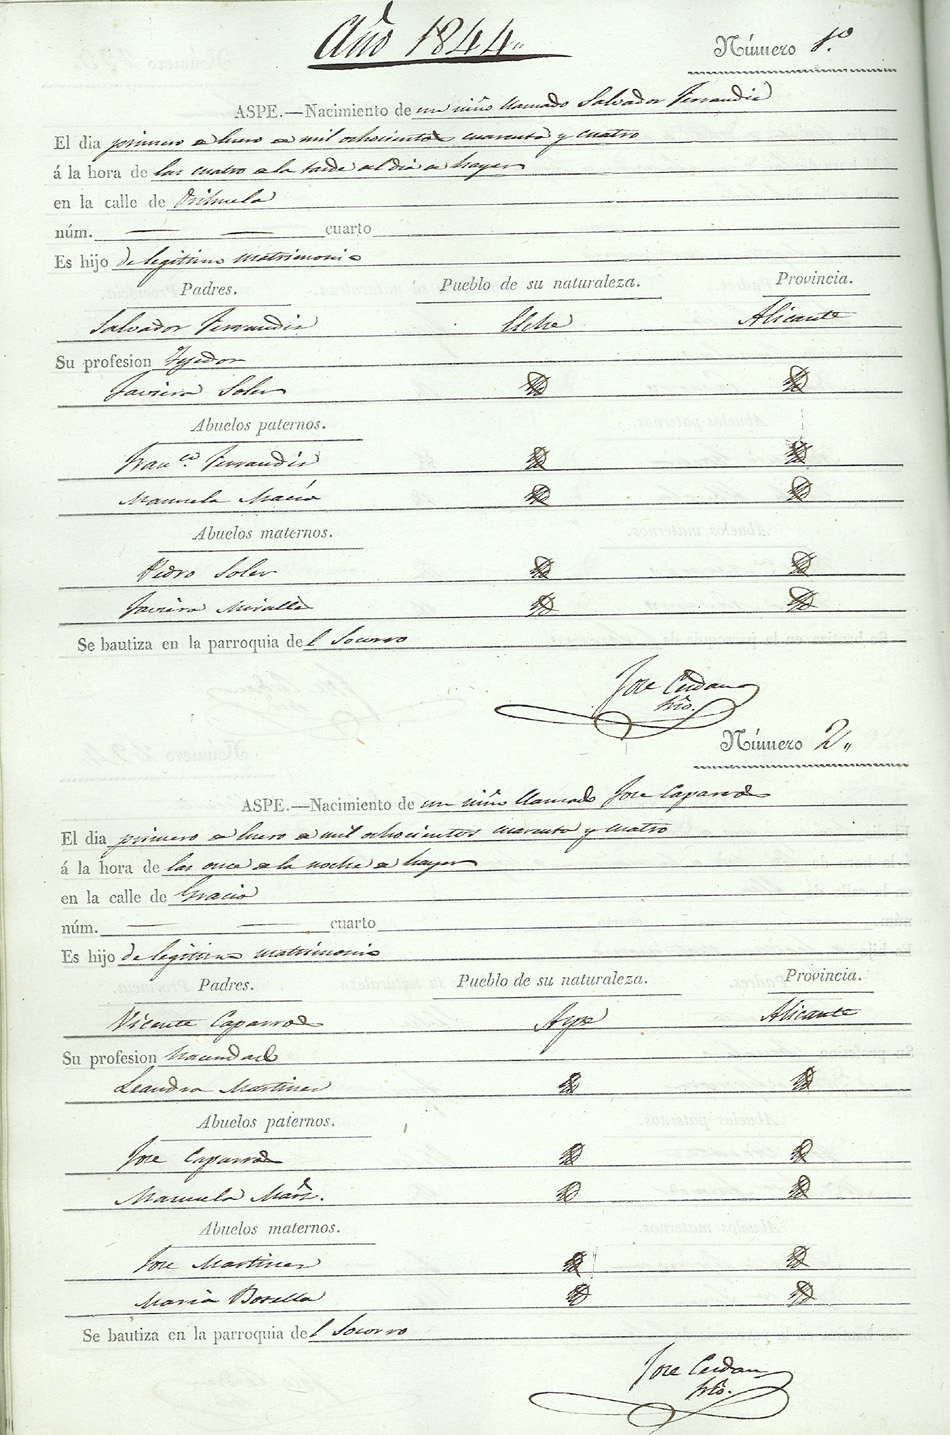 Año 1844
Número 1º
ASPE.—Nacimiento de un niño llamado Salvador Ferrandis
El dia primero de Enero de mil ochocientos cuarenta y cuatro
á la hora de las cuatro de la tarde del dia de hayer
en la calle de Orihuela
núm. — — cuarto
Es hijo de legitimo matrimonio
Padres. Pueblo de su naturaleza. Provincia.
Salvador Ferrandis Elche Alicante
Su profesion Tejedor
Javiera Soler
Abuelos paternos.
Franco. Ferrandis
Manuela Maciá
Abuelos maternos.
Pedro Soler
Javiera Miralles
Se bautiza en la parroquia del Socorro
Jose Cerdan
Srio.
Número 2
ASPE.—Nacimiento de un niño llamado Jose Caparros
El dia primero de Enero de mil ochocientos cuarenta y cuatro
á la hora de las once de la noche de hayer
en la calle de Gracia
núm. — — cuarto
Es hijo de legitimo matrimonio
Padres. Pueblo de su naturaleza. Provincia.
Vicente Caparros Aspe Alicante
Su profesion hacendado
Leandra Martinez
Abuelos paternos.
Jose Caparros
Manuela
Abuelos maternos.
Jose Martinez
Maria Botella
Se bautiza en la parroquia del Socorro
Jose Cerdan
Srio.